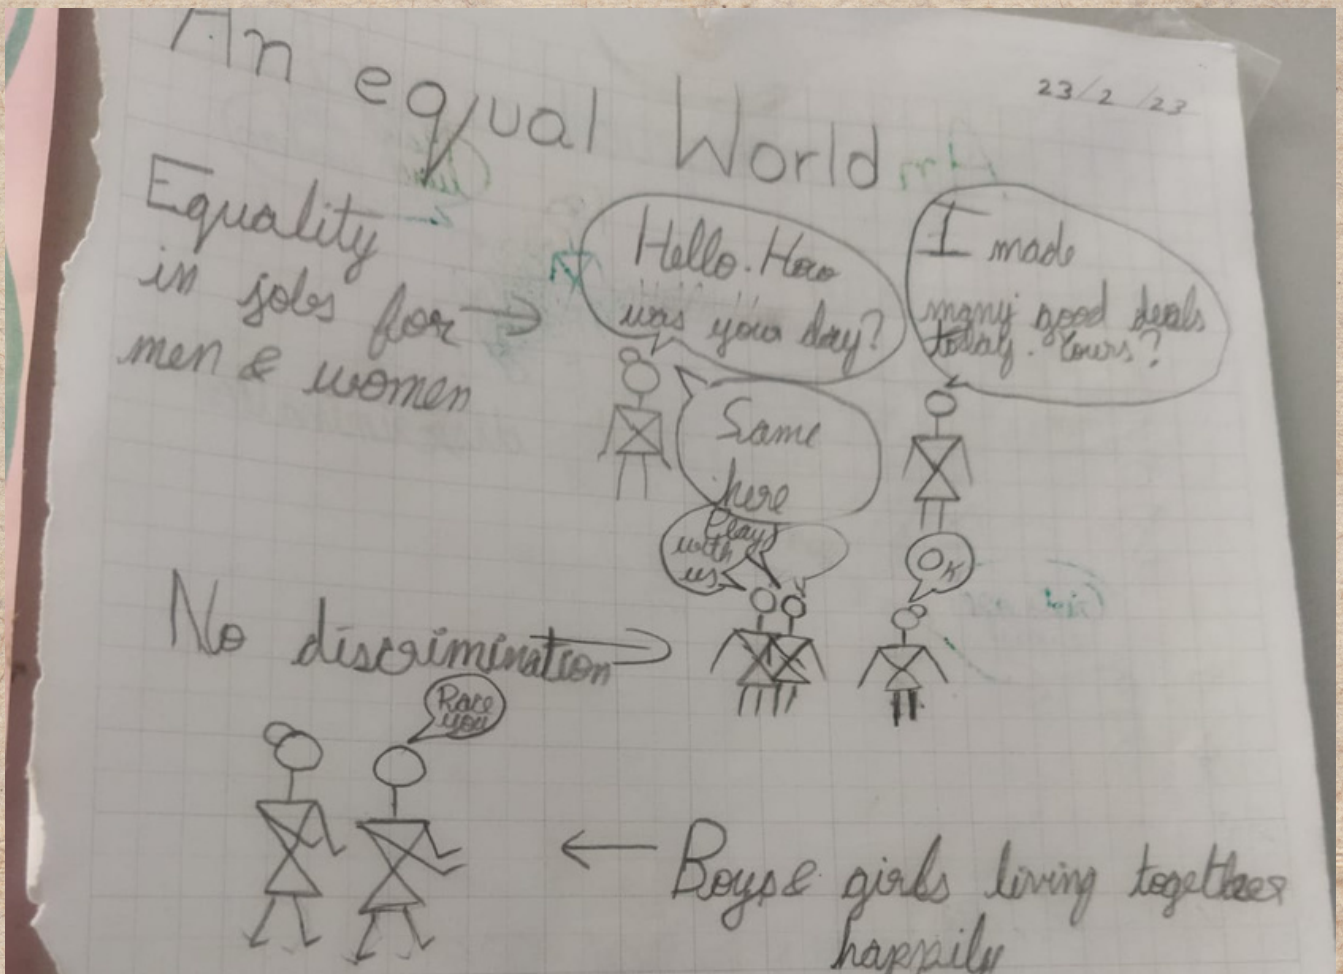 An equal World
23/2/23
Equality
in jobs for
men & women
Hello. How
was your day?
I made
many good deals
today. Yours?
Same
here
Play
with
us
OK
No discrimination
Race
you
Boys & girls living together
happily